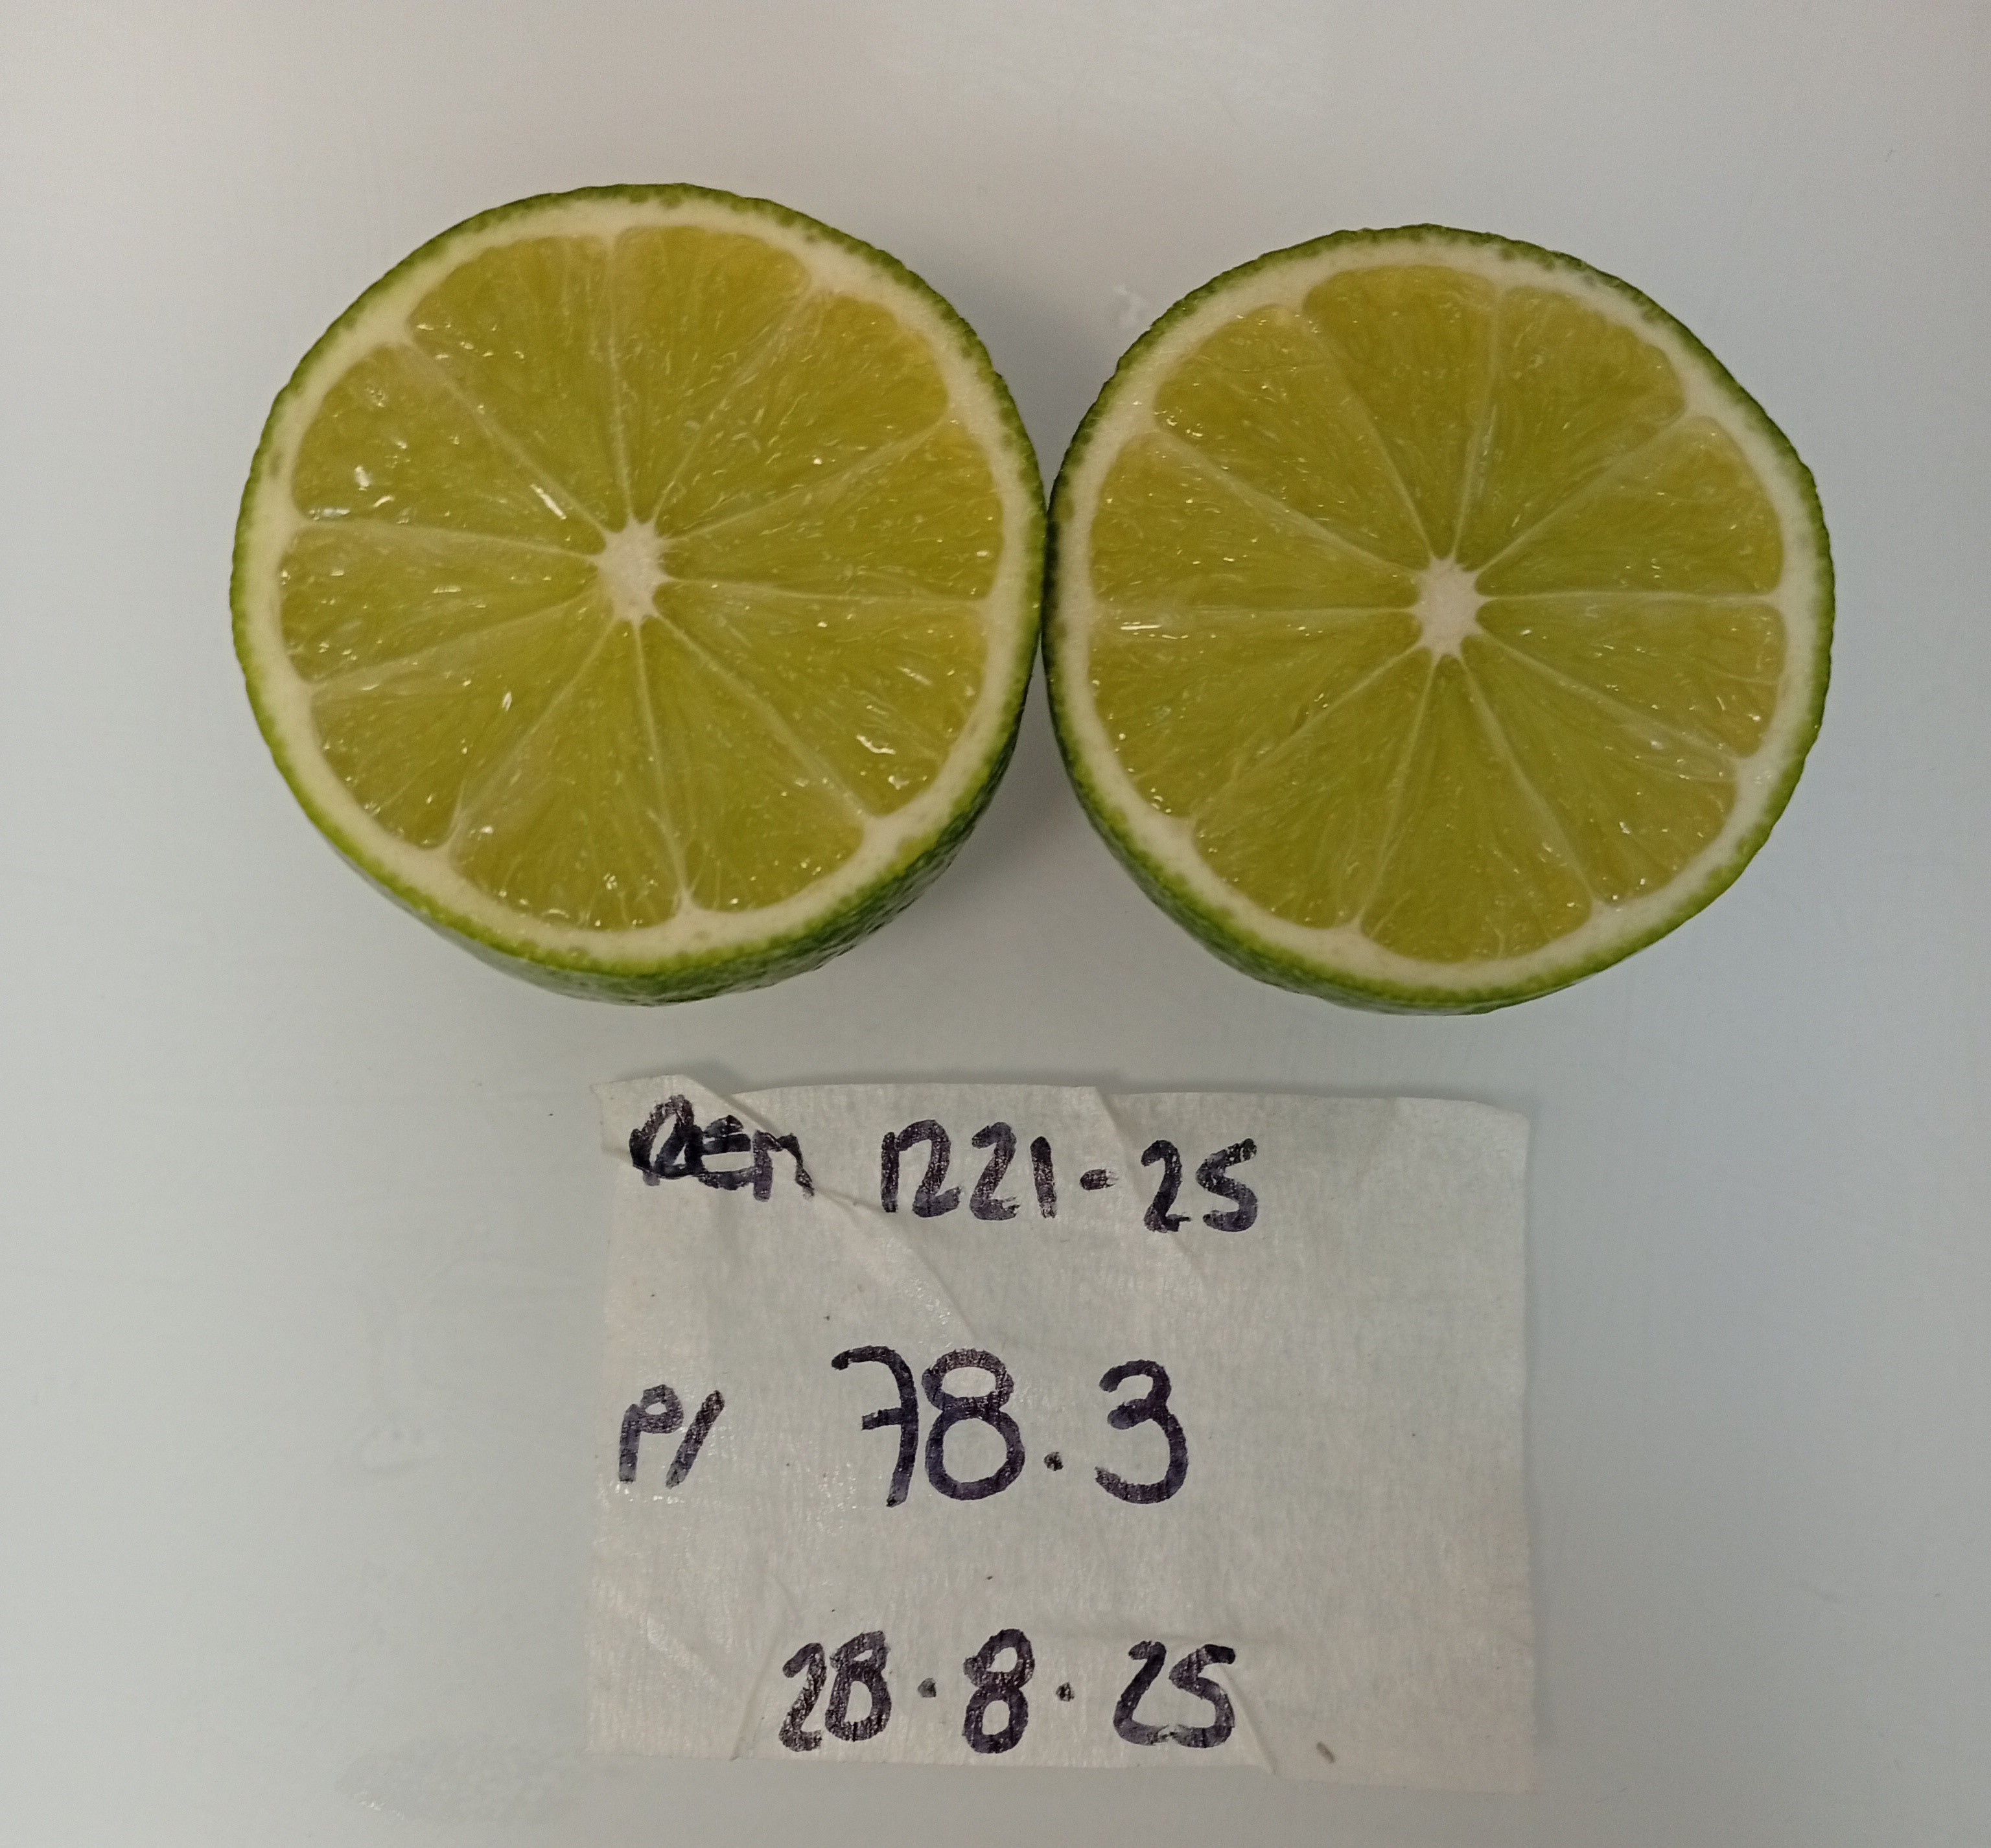 REM 1221-25
P/ 78.3
28.8.25